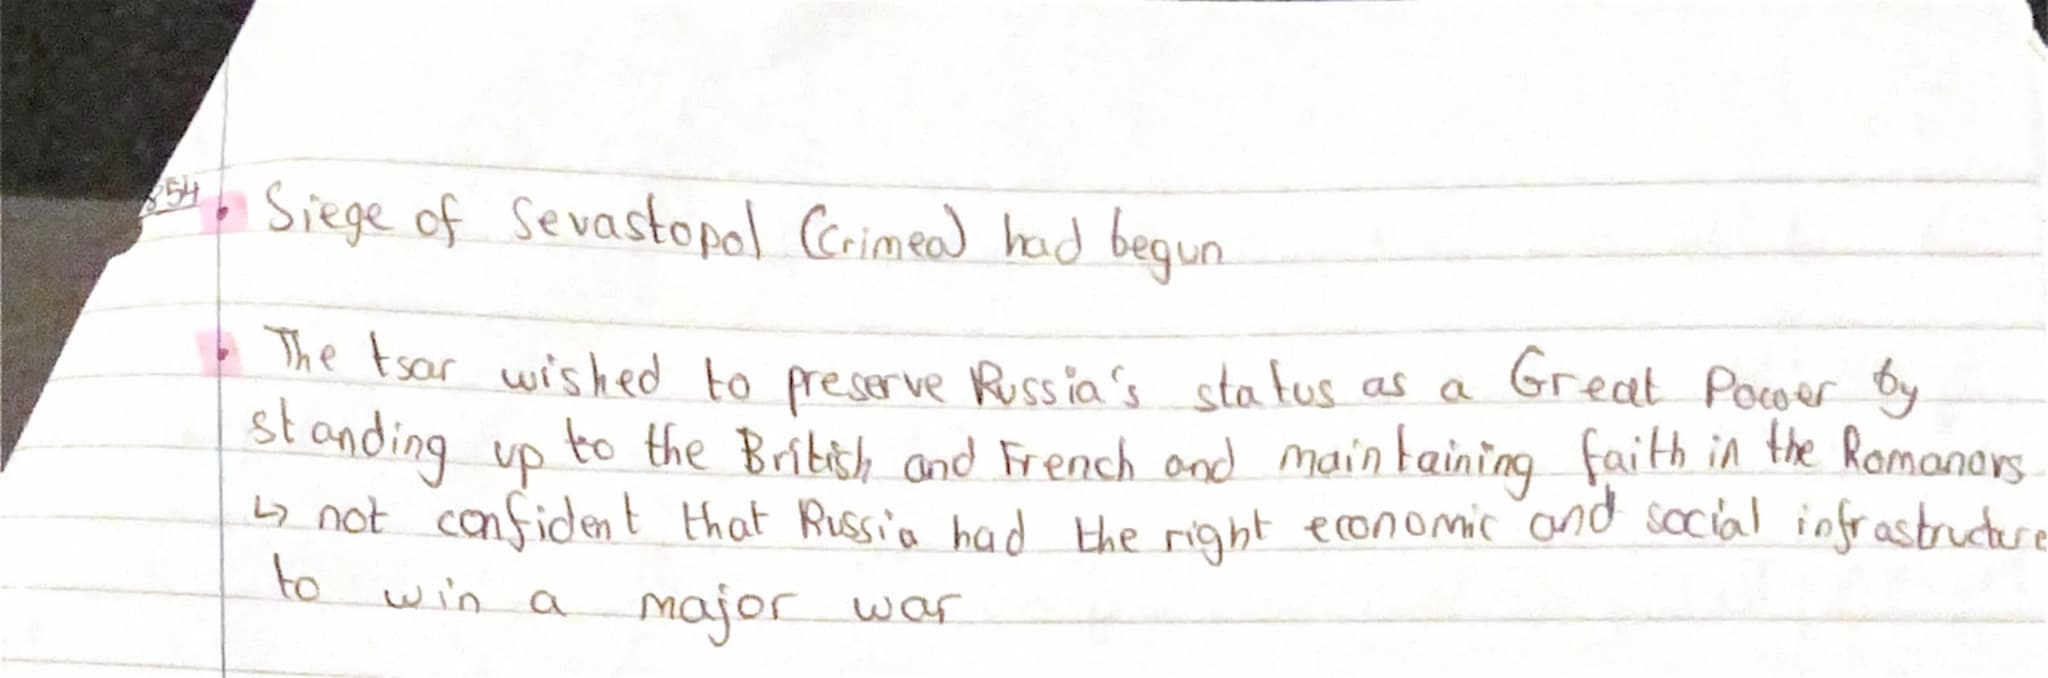 854 • Siege of Sevastopol (Crimea) had begun
• The tsar wished to preserve Russia's status as a Great Power by
standing up to the British and French and maintaining faith in the Romanovs
↳ not confident that Russia had the right economic and social infrastructure
to win a major war